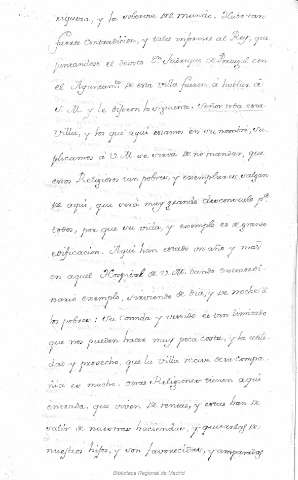 riqueza, y la soberbia del mundo. Hubo tan
fuerte contradicion, y tales informes al Rey, que
juntandose el devoto Dn. Fadrique de Portugal con
el Ayuntamto. de esta villa fueron, á hablar á
V. M. y le dijeron lo siguiente. Señor toda esta
Villa, y los que aquí estamos en su nombre, Su
plicamos á V. M. se sirva de no mandar, que
estos Religiosos tan pobres, y exemplares, salgan
de aqui, que será muy grande desconsuelo pa.
todos, por que su vida, y exemplo es de grande
edificacion. Aqui han estado un año y mas
en aquel Hospital de V. M. dando extraordi
nario exemplo, sirviendo de dia, y de noche á
los pobres: Su comida y vestido es tan limitado
que nos pueden hacer muy poca costa, y la utili
dad y provecho, que la villa recive de su compa
ñia es mucho. otros Religiosos tienen aqui
entrada, que viven de rentas, y estas han de
salir de nuestras haciendas, y quitarlas de
nuestros hijos, y son favorecidos, y amparados
Biblioteca Regional de Madrid